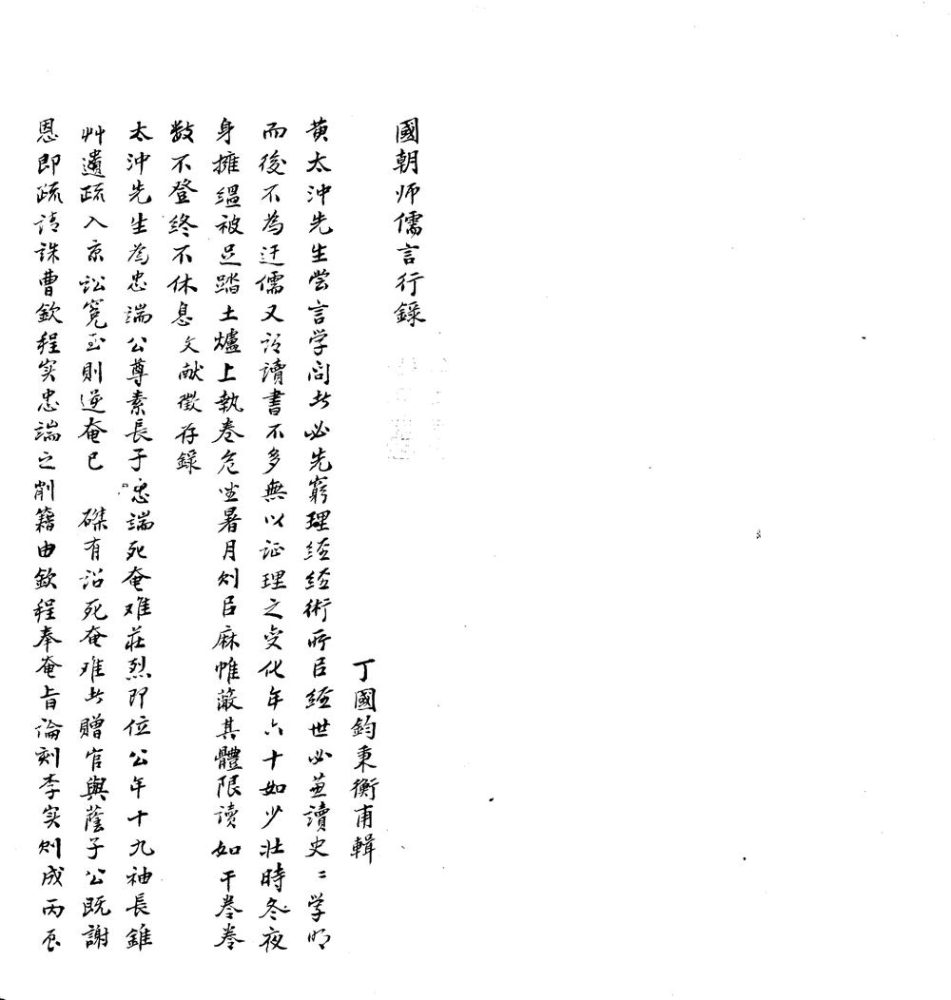 國朝师儒言行錄
丁國鈞秉衡甫輯
黄太沖先生嘗言学问者必先窮理經經術所㠯經世必兼讀史〻学明
而後不為迂儒又谓讀書不多無以证理之变化年六十如少壮時冬夜
身擁緼被足踏土爐上執卷危坐暑月则㠯麻帷蔽其體限读如干卷卷
数不登终不休息文献徵存錄
太沖先生為忠端公尊素長子忠端死奄难莊烈即位公年十九袖長錐
艸遺疏入京訟冤至則逆奄已磔有诏死奄难者贈官與蔭子公既謝
恩即疏请誅曹欽程实忠端之削籍由欽程奉奄旨論刻李实则成丙辰